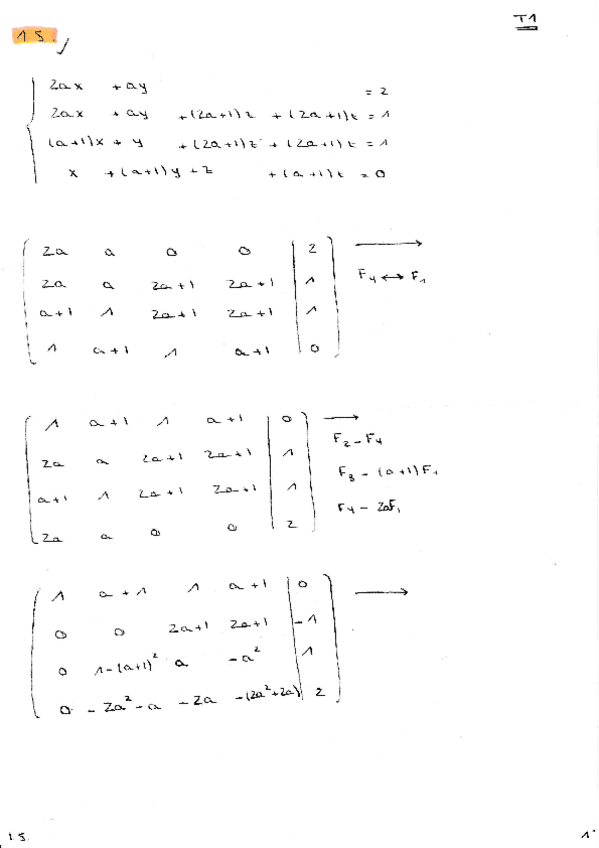 T1
15.
2ax + ay = 2
2ax + ay + (2a+1)z + (2a+1)t = 1
(a+1)x + y + (2a+1)z + (2a+1)t = 1
x + (a+1)y + z + (a+1)t = 0
2a a 0 0 | 2 →
2a a 2a+1 2a+1 | 1 F4 ↔ F1
a+1 1 2a+1 2a+1 | 1
1 a+1 1 a+1 | 0
1 a+1 1 a+1 | 0 →
2a a 2a+1 2a+1 | 1 F2 - F4
a+1 1 2a+1 2a+1 | 1 F3 - (a+1)F1
2a a 0 0 | 2 F4 - 2aF1
1 a+1 1 a+1 | 0 →
0 0 2a+1 2a+1 | -1
0 1-(a+1)² a -a² | 1
0 -2a²-a -2a -(2a²+2a) | 2
15. 1